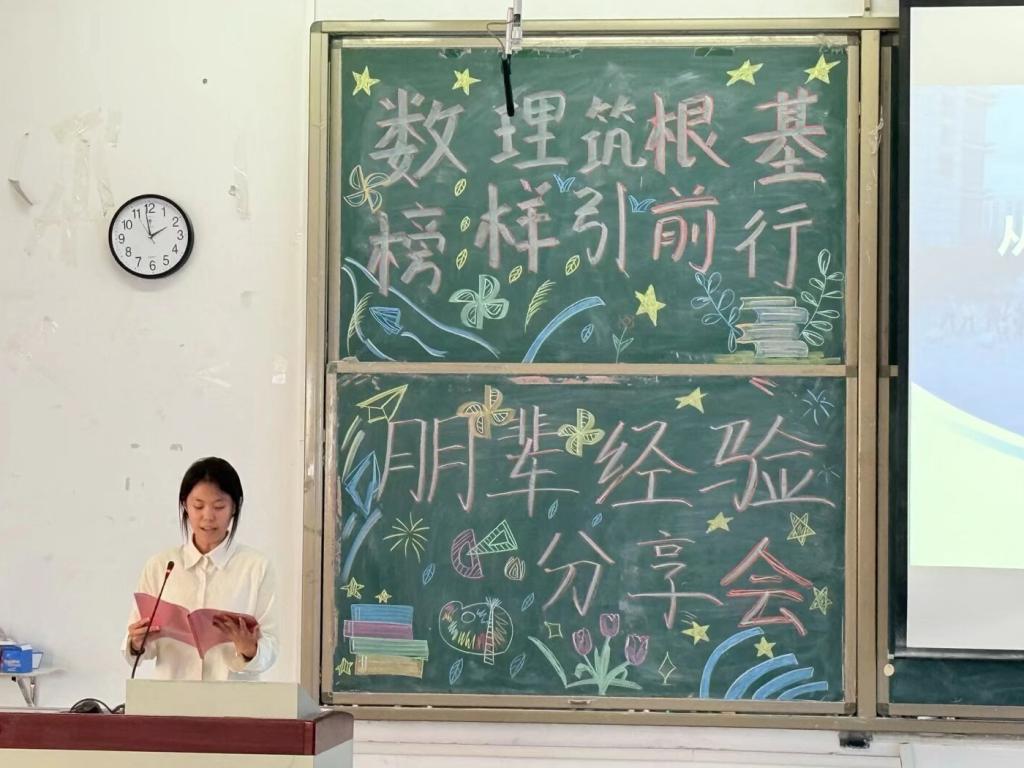 数理筑根基
榜样引前行
朋辈经验
分享会
从
11 12 1
10 2
9 3
8 4
7 6 5